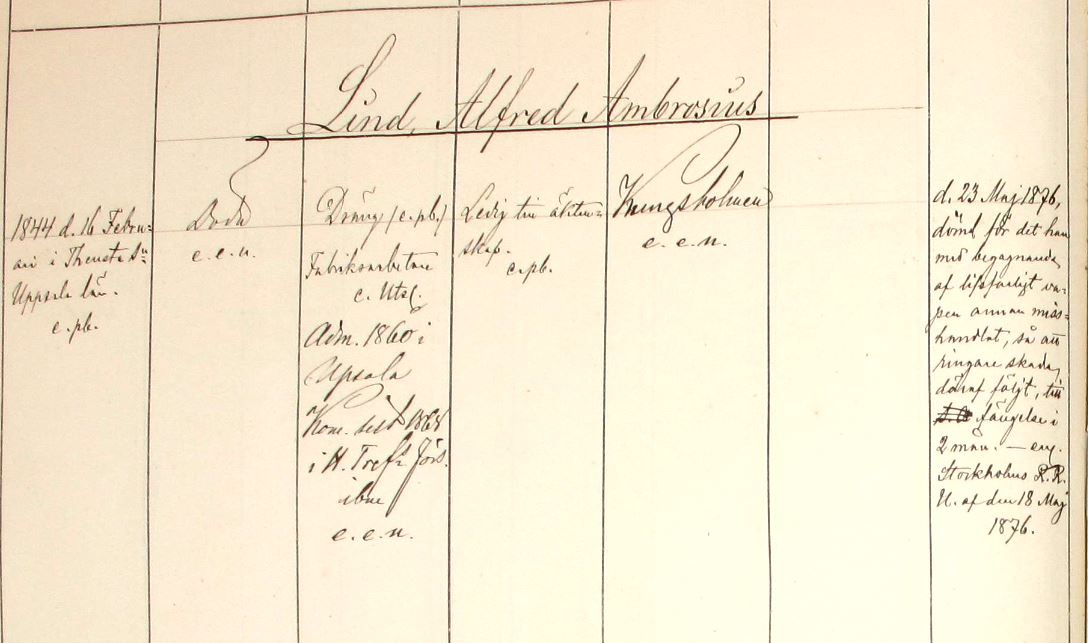 Lind, Alfred Ambrosius
1844 d. 16 Febru-
ari i Thensta Sn
Uppsala län.
e. pb.
Döda
e. e. u.
Dräng (e. pb.)
Fabriksarbetare
e. Utsl.
Adm. 1860 i
Upsala
Kom. sist 1868
i H. Tref. förs.
ibm
e. e. u.
Ledig till äkten-
skap.
e. pb.
Kungsholmen
e. e. u.
d. 23 Maj 1876,
dömd för det han
med begagnande
af lifsfarligt va-
pen annan miss-
handlat, så att
ringare skada
däraf följt, till
fängelse i
2 mån. — enl.
Stockholms R. R.
U. af den 18 Maj
1876.